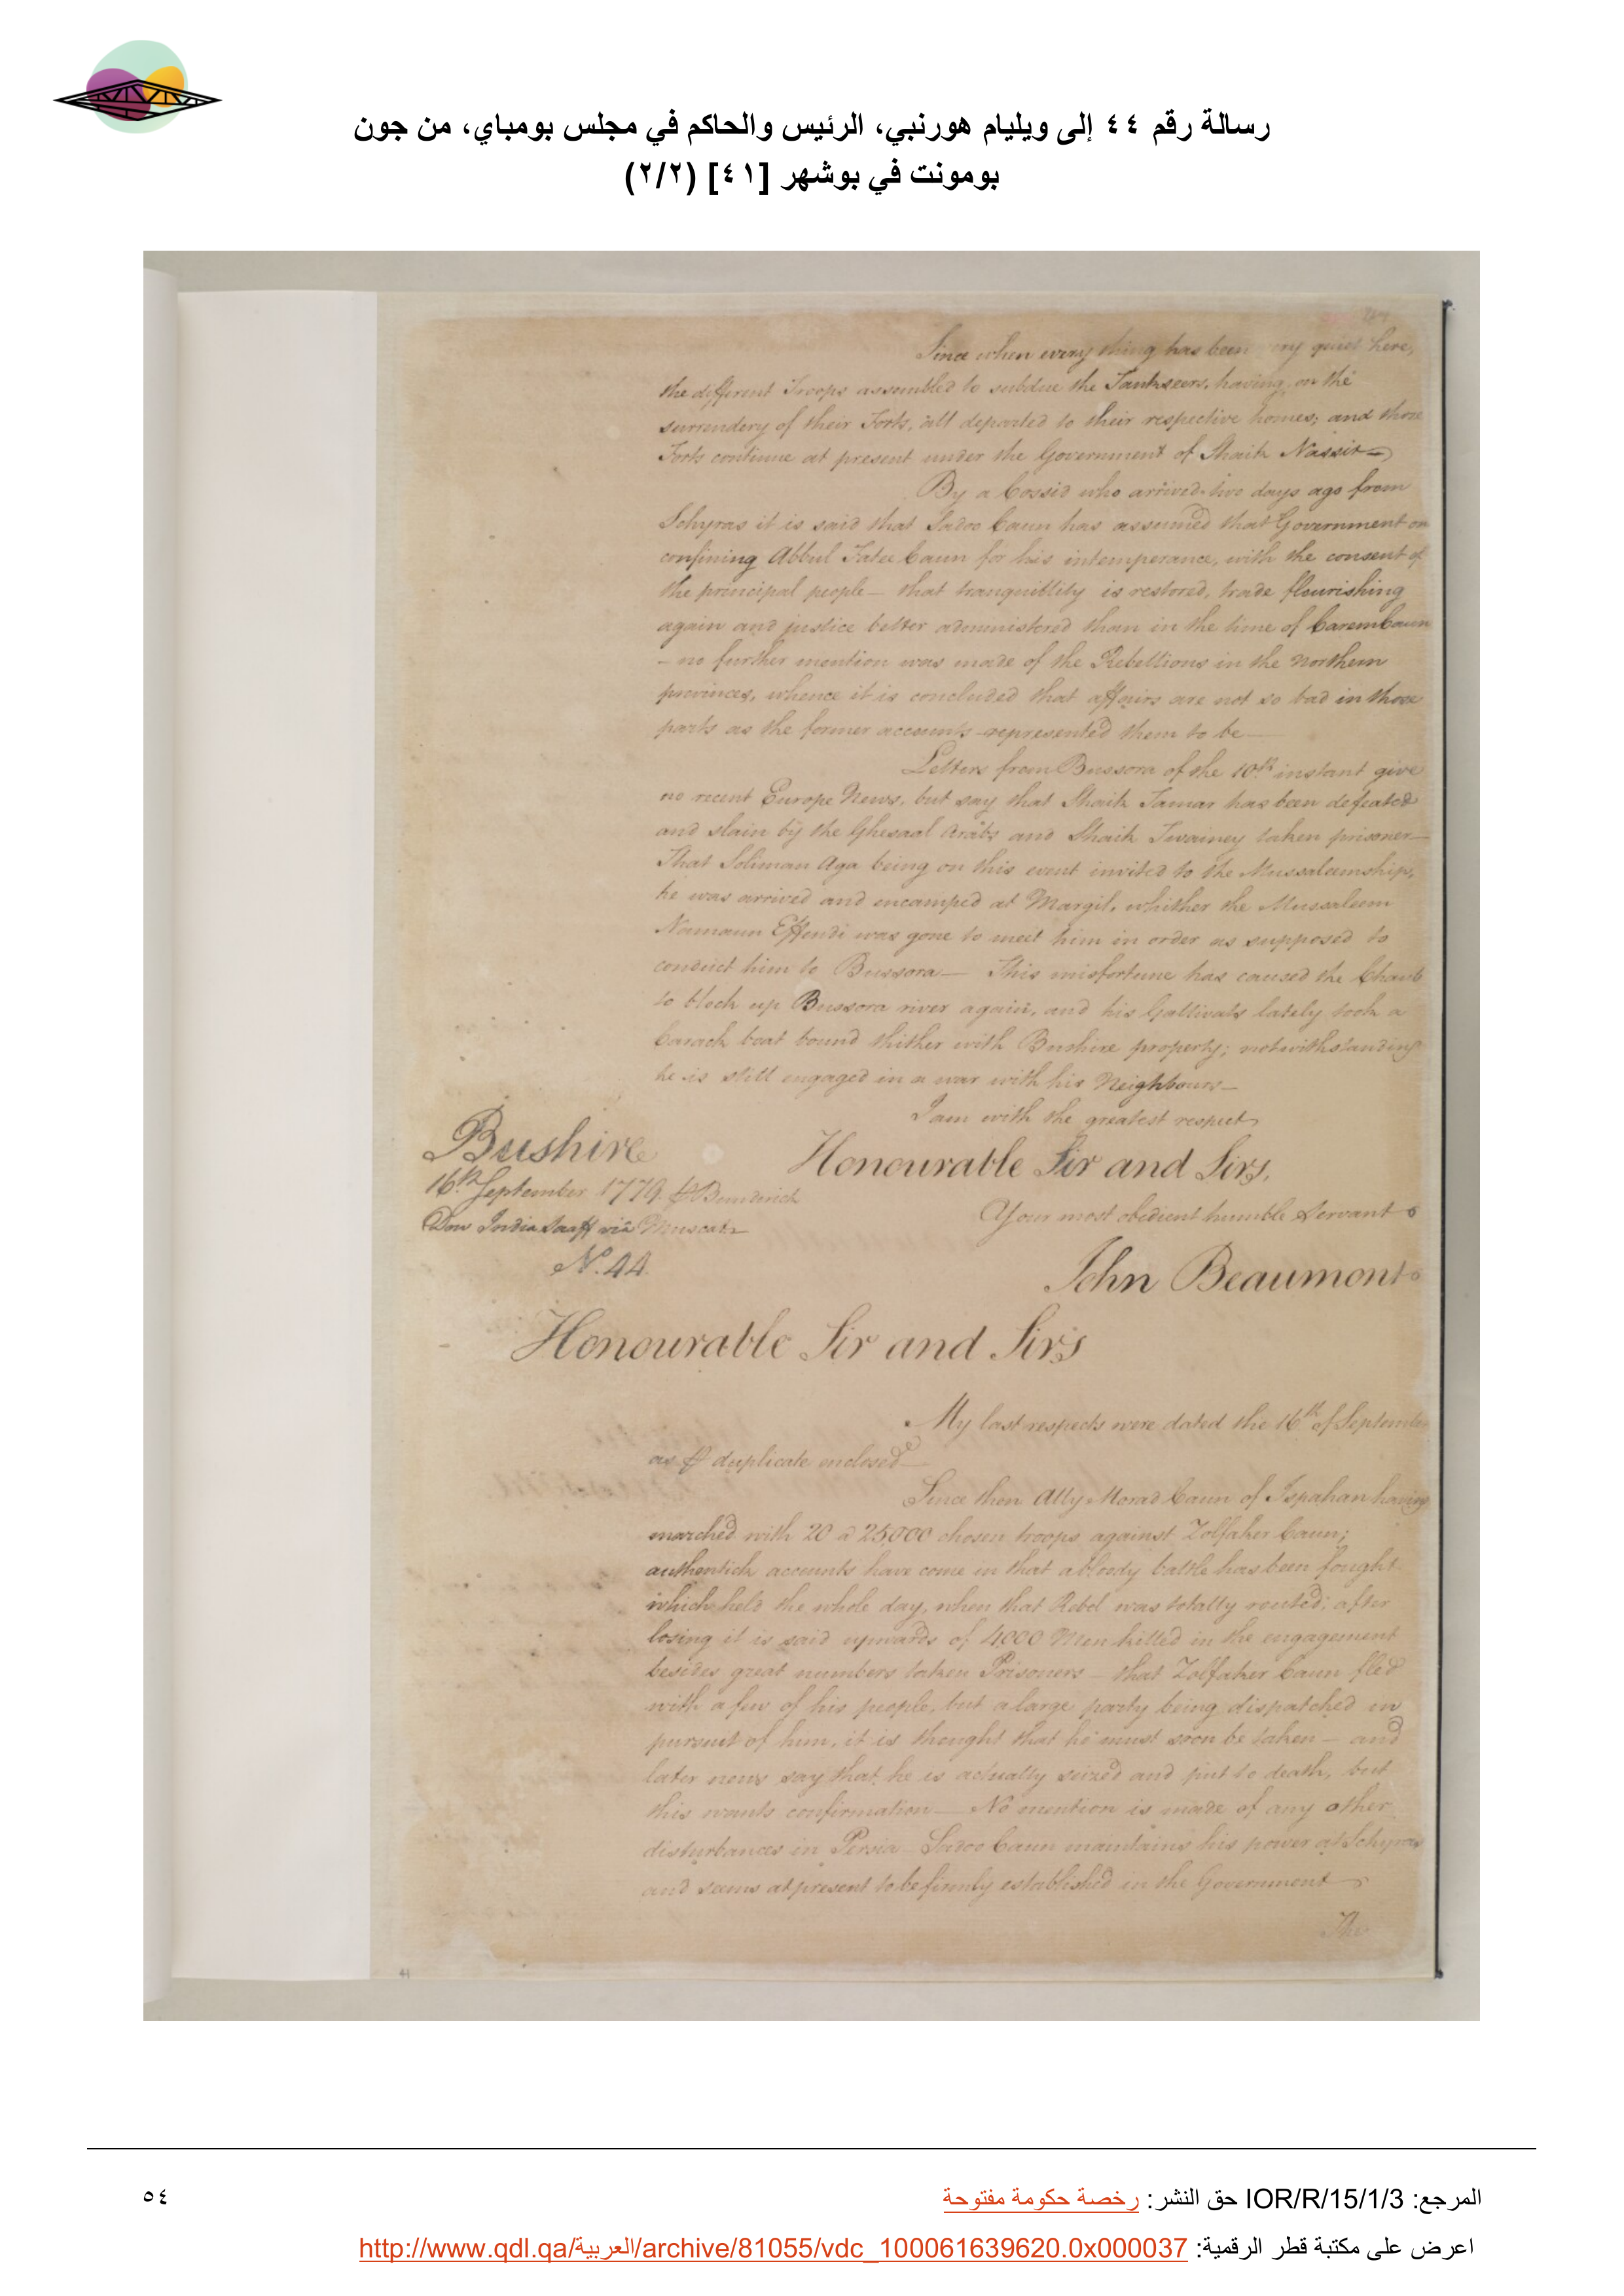 رسالة رقم ٤٤ إلى ويليام هورنبي، الرئيس والحاكم في مجلس بومباي، من جون
بومونت في بوشهر [٤١] (٢/٢)
Since when every thing has been quiet here,
the different Troops assembled to subdue the Tankseers, having on the
surrendery of their Forts, all departed to their respective homes; and those
Forts continue at present under the Government of Shaik Nassir—
By a Cossid who arrived two days ago from
Schyras it is said that Sadoo Caun has assumed that Government on
confining Abbul Fatee Caun for his intemperance, with the consent of
the principal people— that tranquillity is restored, trade flourishing
again and justice better administered than in the time of CaremCaun
— no further mention was made of the Rebellions in the Northern
provinces, whence it is concluded that affairs are not so bad in those
parts as the former accounts represented them to be—
Letters from Bussora of the 10th instant give
no recent Europe News, but say that Shaik Tamar has been defeated
and slain by the Ghesaal Arabs and Shaik Twainey taken prisoner—
That Soliman Aga being on this event invited to the Mussaleemship,
he was arrived and encamped at Margil, whither the Mussaleem
Namaun Effendi was gone to meet him in order as supposed to
conduct him to Bussora— This misfortune has caused the Chaub
to block up Bussora river again, and his Gallivats lately took a
Carack boat bound thither with Bushire property; notwithstanding
he is still engaged in a war with his Neighbours—
I am with the greatest respect
Honourable Sir and Sirs,
Bushire
16th September 1779
Your most obedient humble Servant
Dow via Muscat
N. 44
John Beaumont
Honourable Sir and Sirs
My last respects were dated the 16th of September
as duplicate enclosed—
Since then Ally Morad Caun of Ispahan having
marched with 20 a 25,000 chosen troops against Zolfaker Caun;
authentick accounts have come in that a bloody battle has been fought
which held the whole day, when that Rebel was totally routed; after
losing it is said upwards of 4,000 Men killed in the engagement
besides great numbers taken Prisoners— that Zolfaker Caun fled
with a few of his people, but a large party being dispatched in
pursuit of him, it is thought that he must soon be taken— and
later news say that he is actually seized and put to death, but
this wants confirmation— No mention is made of any other
disturbances in Persia— Sadoo Caun maintains his power at Schyras
and seems at present to be firmly established in the Government
The
41
المرجع: IOR/R/15/1/3 حق النشر: رخصة حكومة مفتوحة
٥٤
اعرض على مكتبة قطر الرقمية: http://www.qdl.qa/العربية/archive/81055/vdc_100061639620.0x000037